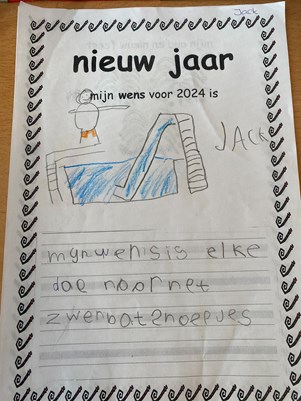 Jack
nieuw jaar
mijn wens voor 2024 is
JACK
mynwensis elke
dae noornet
zwenbatenoepjes